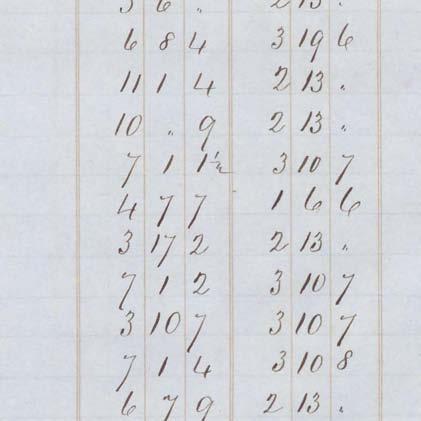 3 6 " 2 13 "
6 8 4 3 19 6
11 1 4 2 13 "
10 " 9 2 13 "
7 1 1½ 3 10 7
4 7 7 1 6 6
3 17 2 2 13 "
7 1 2 3 10 7
3 10 7 3 10 7
7 1 4 3 10 8
6 7 9 2 13 "